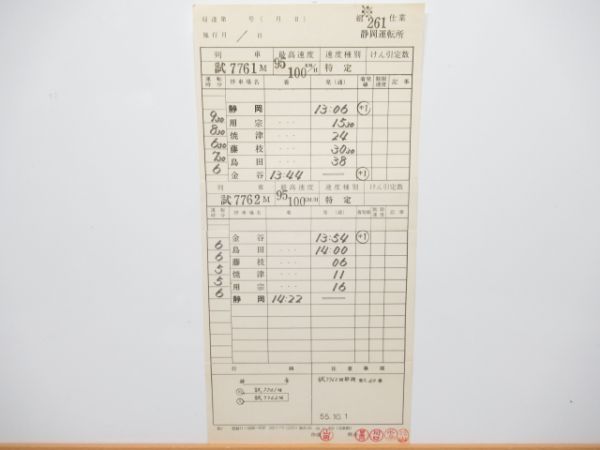 号(月 日)
施行月 / 日
組 261 仕業
静岡運転所
列 車 最高速度 速度種別 けん引定数
試7761M 95 100 KM/H 特定
運転時分 停車場名 着 発(通) 着発線 制限速度 記事
静 岡 13:06 +1
9 30 用 宗 ... 15 30
8 30 焼 津 ... 24
6 30 藤 枝 ... 30 30
7 30 島 田 ... 38
6 金 谷 13:44 +1
列 車 最高速度 速度種別 けん引定数
試7762M 95 100 KM/H 特定
運転時分 停車場名 着 発(通) 着発線 制限速度 記事
金 谷 13:54 +1
6 島 田 ... 14:00
6 藤 枝 ... 06
5 焼 津 ... 11
5 用 宗 ... 16
6 静 岡 14:22
試7761M
試7762M
55.10.1